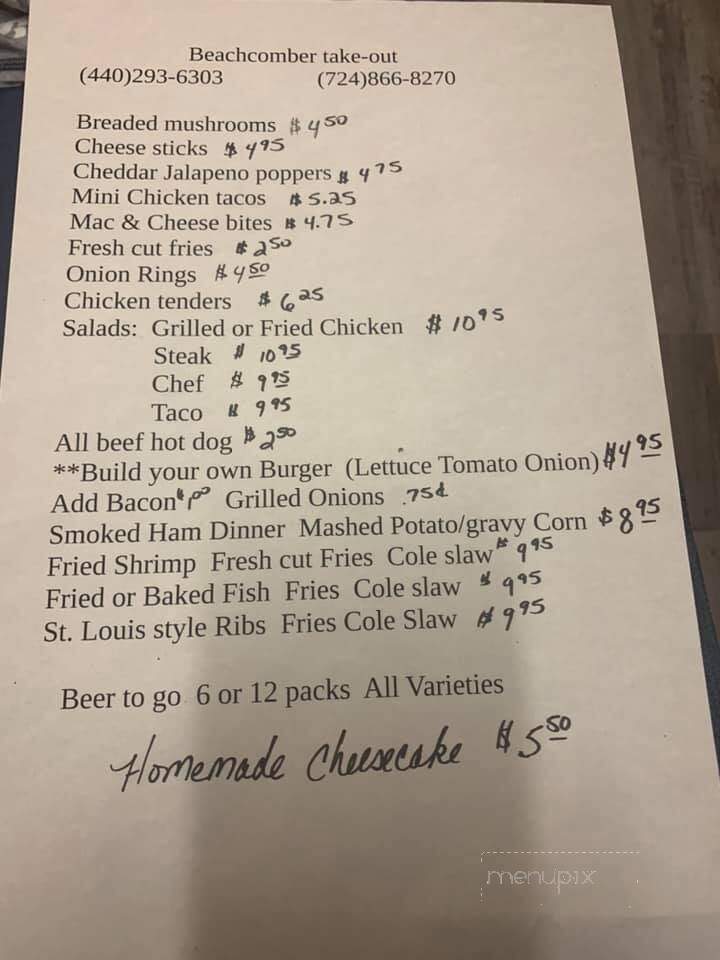 Beachcomber take-out
(440)293-6303 (724)866-8270
Breaded mushrooms $4.50
Cheese sticks $4.95
Cheddar Jalapeno poppers $4.75
Mini Chicken tacos $5.25
Mac & Cheese bites $4.75
Fresh cut fries $2.50
Onion Rings $4.50
Chicken tenders $6.25
Salads: Grilled or Fried Chicken $10.95
Steak $10.95
Chef $9.95
Taco $9.95
All beef hot dog $2.50
**Build your own Burger (Lettuce Tomato Onion) $4.95
Add Bacon $1.00 Grilled Onions .75¢
Smoked Ham Dinner Mashed Potato/gravy Corn $8.95
Fried Shrimp Fresh cut Fries Cole slaw $9.95
Fried or Baked Fish Fries Cole slaw $9.95
St. Louis style Ribs Fries Cole Slaw $9.95
Beer to go 6 or 12 packs All Varieties
Homemade Cheesecake $5.50
menupix